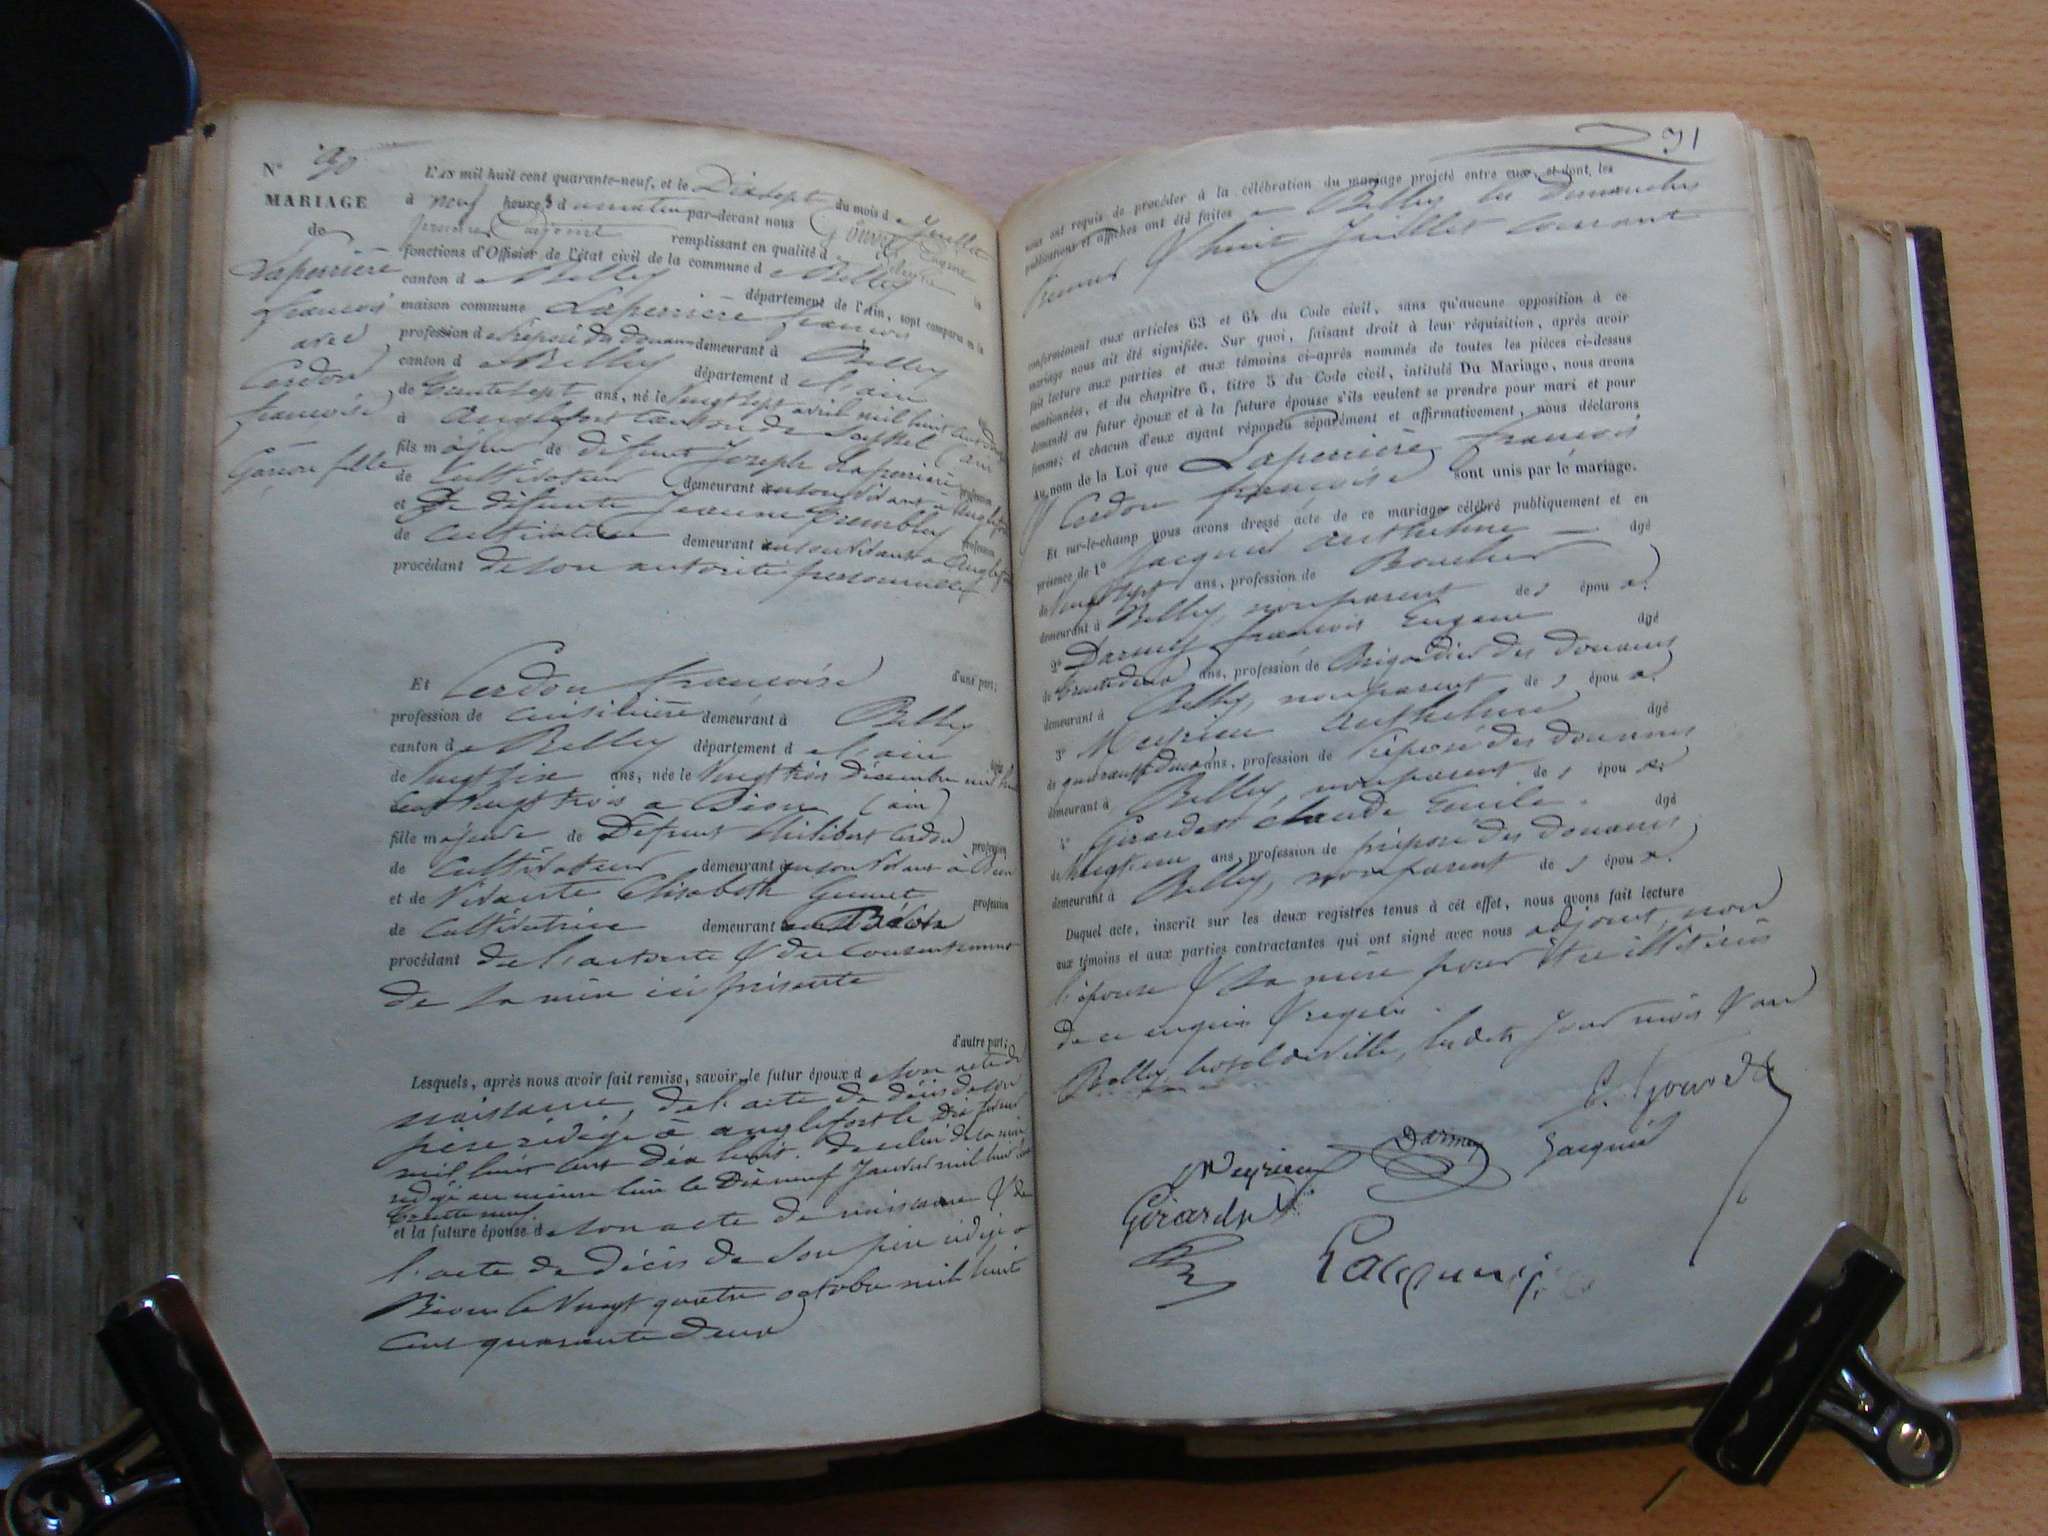 N° 
MARIAGE
de
Laperrière
françois
avec
Cerdon
françoise
Garçon fille
L'AN mil huit cent quarante-neuf, et le Dix sept du mois de Juillet
à neuf heures du matin par-devant nous
premier adjoint remplissant en qualité d
fonctions d'Officier de l'état civil de la commune de Belley
canton de Belley département de l'Ain, sont comparus en la
maison commune Laperrière françois
profession de Préposé des douanes demeurant à Belley
canton de Belley département de l'ain
de trente sept ans, né le Vingt sept avril mil huit cent douze
à anglefort canton de Seyssel (ain
fils majeur de défunt Joseph Laperrière profession
de Cultivateur demeurant en son vivant à anglefort
et de défunte Jeanne profession
de Cultivatrice demeurant en son vivant à anglefort
procédant de son autorité personnelle
d'une part;
Et Cerdon françoise
profession de cuisinière demeurant à Belley
canton de Belley département de l'ain
de Vingt six ans, née le Vingt trois Décembre mil huit
cent vingt trois à Béon (ain)
fille majeure de Défunt Philibert Cerdon profession
de Cultivateur demeurant en son vivant à Béon
et de Vivante Elisabeth profession
de Cultivatrice demeurant à Béon
procédant de l'autorité & du consentement
de sa mère ici présente
d'autre part;
Lesquels, après nous avoir fait remise, savoir: le futur époux de son acte de
naissance, de l'acte de décès de son
père rédigé à anglefort le
mil huit cent dix huit. de celui de sa mère
rédigé au même lieu le Dix neuf Janvier mil huit cent
trente neuf
et la future épouse de son acte de naissance & de
l'acte de décès de son père rédigé à
Béon le Vingt quatre octobre mil huit
cent quarante deux
31
nous ont requis de procéder à la célébration du mariage projeté entre eux, et dont les
publications et affiches ont été faites à Belley les Dimanches
premier & huit Juillet courant
conformément aux articles 63 et 64 du Code civil, sans qu'aucune opposition à ce
mariage nous ait été signifiée. Sur quoi, faisant droit à leur réquisition, après avoir
fait lecture aux parties et aux témoins ci-après nommés de toutes les pièces ci-dessus
mentionnées, et du chapitre 6, titre 5 du Code civil, intitulé Du Mariage, nous avons
demandé au futur époux et à la future épouse s'ils veulent se prendre pour mari et pour
femme; et chacun d'eux ayant répondu séparément et affirmativement, nous déclarons
Au nom de la Loi que Laperrière françois
& Cerdon françoise sont unis par le mariage.
Et sur-le-champ nous avons dressé acte de ce mariage célébré publiquement et en
présence de 1° Jacquier anthelme âgé
de Vingt sept ans, profession de Boucher
demeurant à Belley, non parent des époux.
2° Darmey françois Eugène âgé
de trente deux ans, profession de Brigadier des douanes
demeurant à Belley, non parent des époux.
3° Meyrieu anthelme âgé
de quarante deux ans, profession de préposé des douanes
demeurant à Belley, non parent des époux.
4° Girardet claude Emile. âgé
de ans profession de préposé des douanes
demeurant à Belley, non parent des époux.
Duquel acte, inscrit sur les deux registres tenus à cet effet, nous avons fait lecture
aux témoins et aux parties contractantes qui ont signé avec nous adjoint, non
l'épouse & sa mère pour être illitérées
de ce enquises & requises.
Belley hotel de ville, les dits jour mois & an
Meyrieu Darmey Jacquier
Girardet